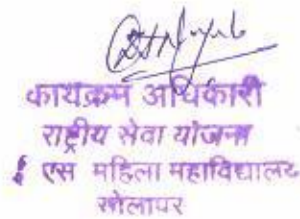 कार्यक्रम अधिकारी
राष्ट्रीय सेवा योजना
एस महिला महाविद्यालय